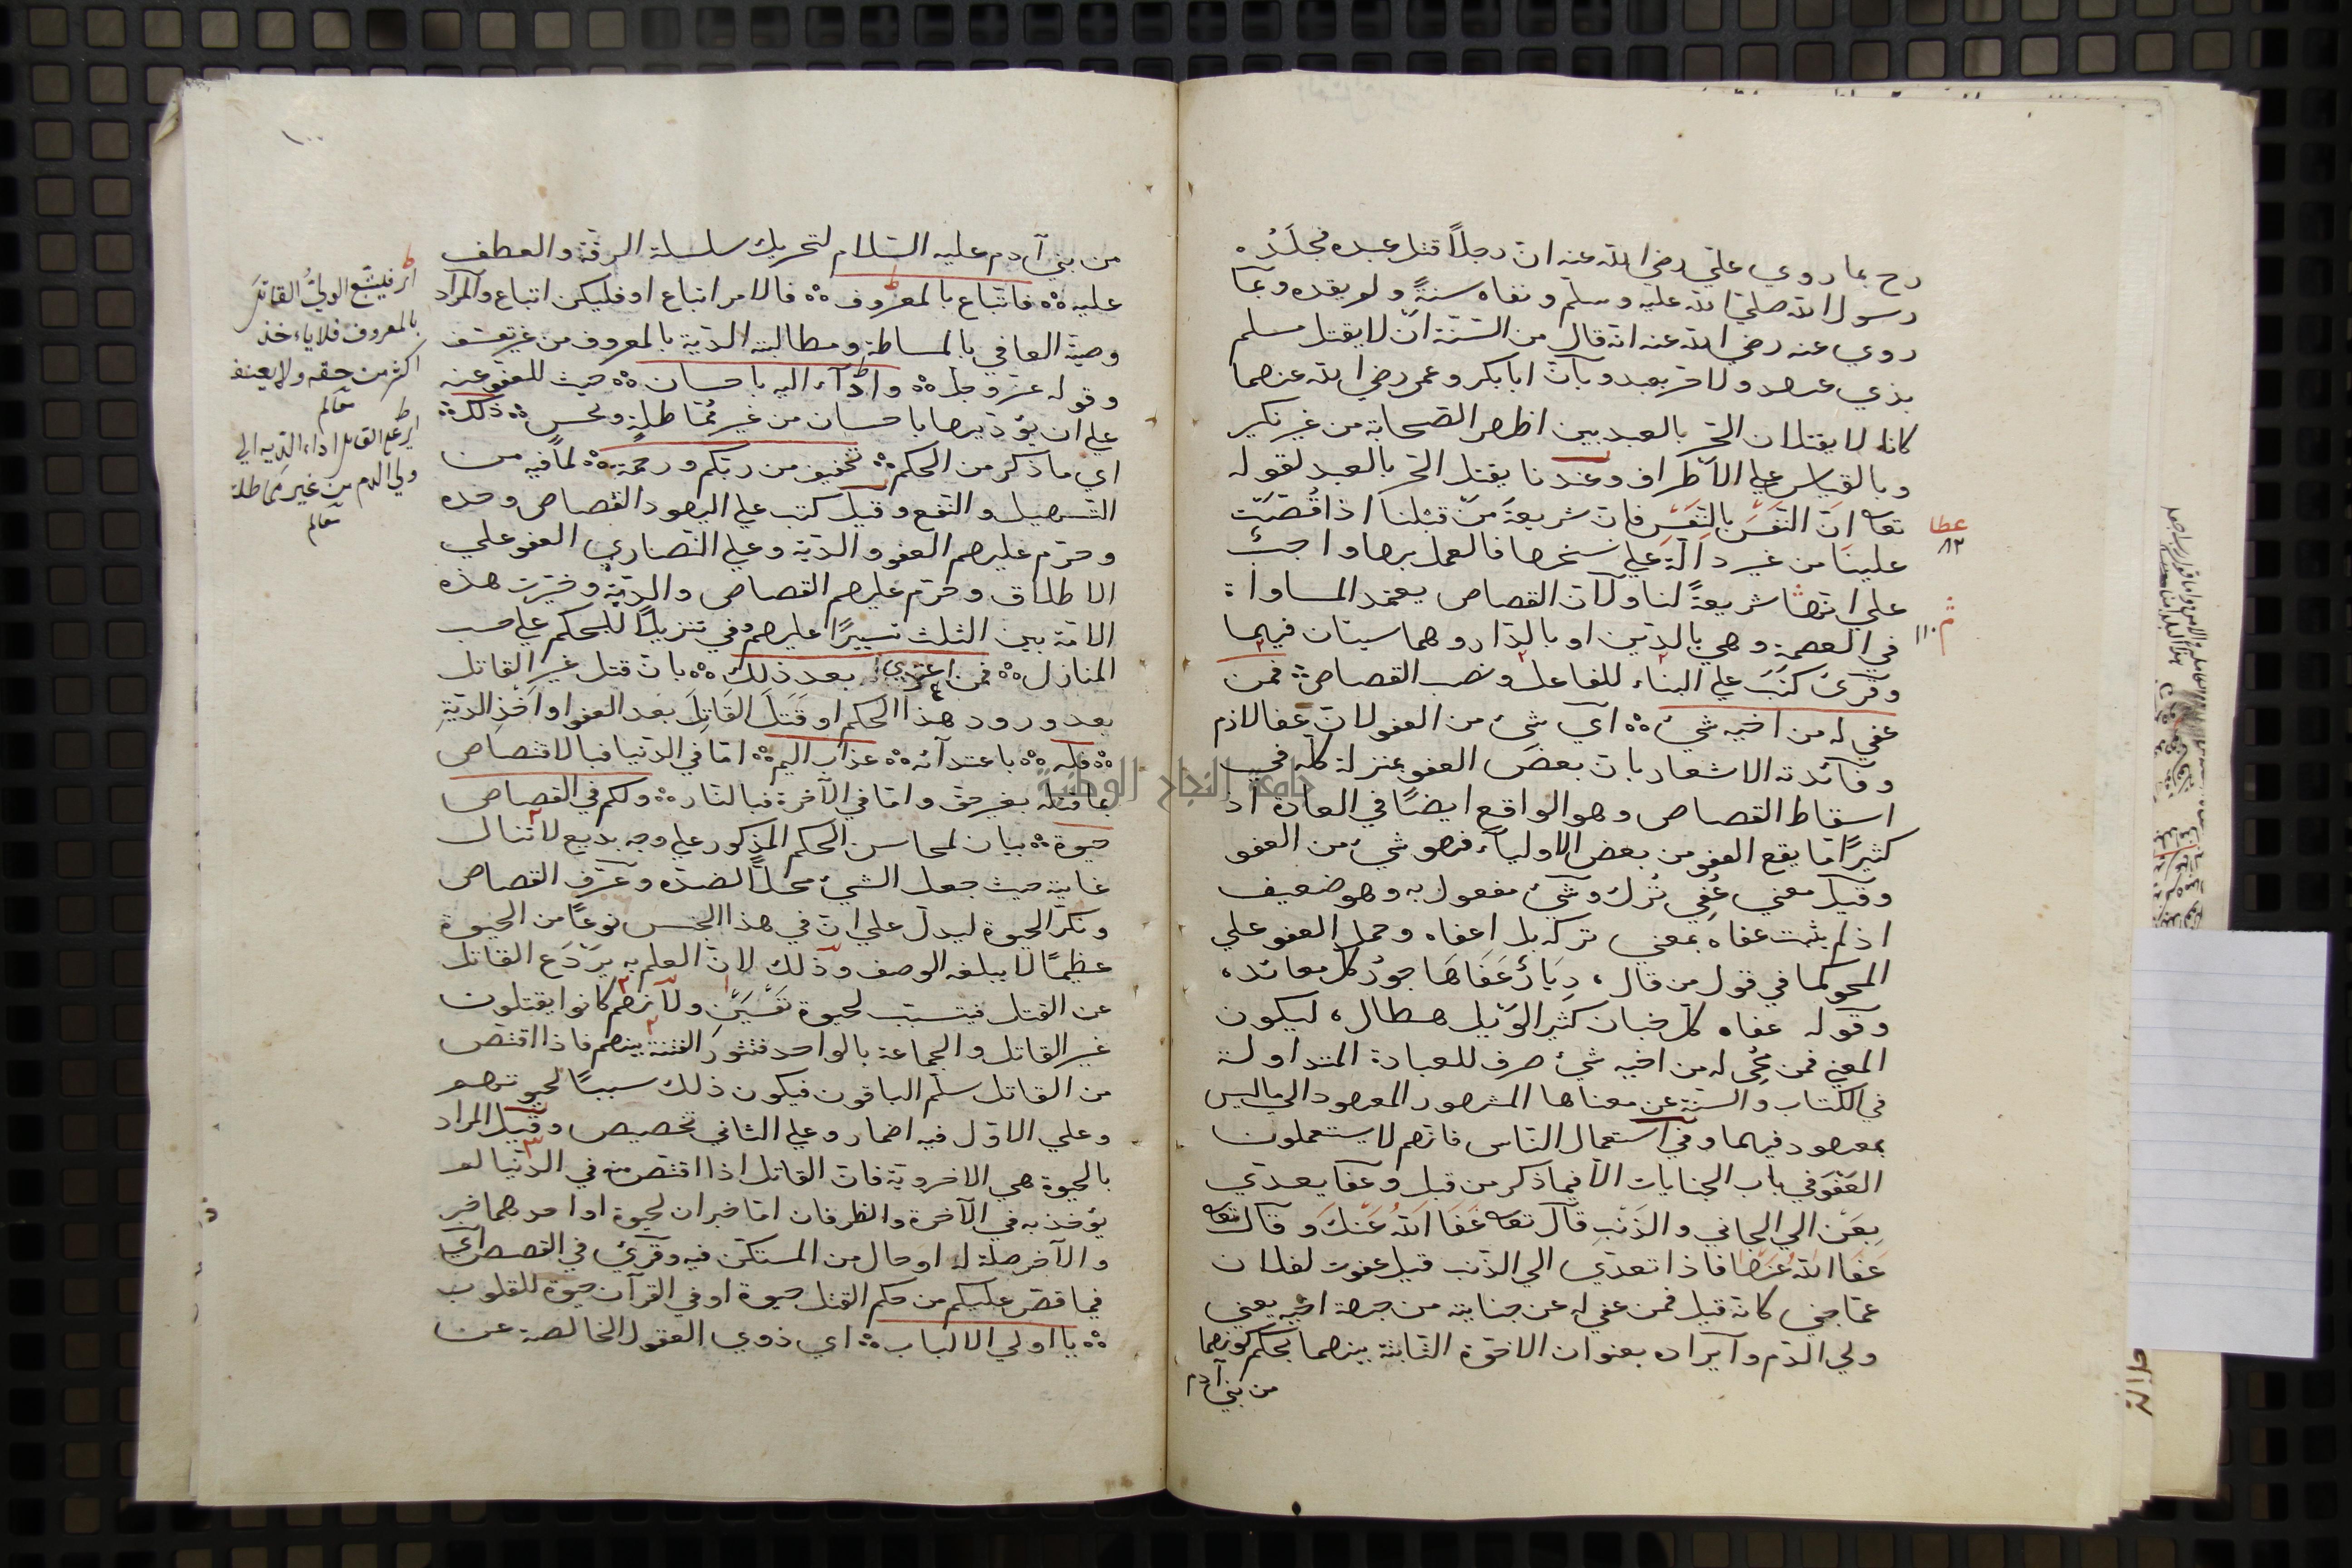 رح بما روي علي رضي الله عنه ان رجلاً قتل عبده فجلده
رسول الله صلي الله عليه وسلم ونفاه سنةً ولم يقده وبما
روي عنه رضي الله عنه انه قال من السنة ان لا يقتل مسلم
بذي عهد ولا حر بعبد وبان ابا بكر وعمر رضي الله عنهما
كانا لا يقتلان الحر بالعبد بين اظهر الصحابة من غير نكير
وبالقياس علي الاطراف وعندنا يقتل الحر بالعبد لقوله
تعا ان النفس بالنفس فان شريعة من قبلنا اذا قُصَّت
علينا من غير دلالة علي نسخها فالعمل بها واجبٌ
علي انها شريعةً لنا ولان القصاص يعتمد المساواة
في العصمة وهي بالدين او بالدار وهما سيان فيهما
وقرئ كَتَبَ علي البناء للفاعل ونصب القصاص فمن
عفي له من اخيه شئ اي شئ من العفو لان عفا لازم
وفائدته الاشعار بان بعض العفو بمنزلة كله في
اسقاط القصاص وهو الواقع ايضًا في العادة اذ
كثيرًا ما يقع العفو من بعض الاولياء فهو شئ من العفو
وقيل معني عُفِي تُرك وشئ مفعول به وهو ضعيف
اذ لم يثبت عفاه بمعني تركه بل اعفاه وحمل العفو علي
المحو كما في قول من قال ، دِيَارٌ عَفَاهَا جورُ كل معاند ،
وقوله عفاه كل حنان كثير الوبل هطال ، ليكون
المعني فمن مُحِي له من اخيه شئ صرف للعبارة المتداولة
في الكتاب والسنة عن معناها المشهور المعهود الي ما ليس
بمعهود فيهما وفي استعمال الناس فانهم لا يستعملون
العفو في باب الجنايات الا فيما ذكر من قبل وعفا يعدي
بِعَنْ الي الجاني والذَنْبِ قال تعا عَفَا اللهُ عَنْكَ وقال تعا
عَفَا اللهُ عَنْهَا فاذا تعدي الي الذنب قيل عفوت لفلان
عما جني كانه قيل فمن عفي له عن جنايته من جهة اخيه يعني
ولي الدم وايراده بعنوان الاخوة الثابتة بينهما بحكم كونهما
من بني آدم
عطا
٨٢
م
١١٠
١٠٠
من بني آدم عليه السلام لتحريك سلسلة الرقة والعطف
عليه فاتباع بالمعروف فالامر اتباع او فليكن اتباع والمراد
وصية العافي بالمساطة ومطالبته الدية بالمعروف من غير تعسف
وقوله عز وجل واداء اليه باحسان حيث للعفو عنه
علي ان يؤديها باحسان من غير مُمَاطلةٍ وبخس ذلك
اي ما ذكر من الحكم تخفيف من ربكم ورحمة لما فيه من
التسهيل والنفع وقيل كتب علي اليهود القصاص وحده
وحرم عليهم العفو والدية وعلي النصاري العفو علي
الاطلاق وحرم عليهم القصاص والدية وخيرت هذه
الامة بين الثلث تيسيرًا عليهم وفي تنزيلاً للحكم علي حسب
المنازل فمن اعتدي بعد ذلك بان قتل غير القاتل
بعد ورود هذا الحكم او قَتَلَ القَاتِلَ بعد العفو او اَخْذِ الديةِ
فله باعتدآئه عذاب اليم اما في الدنيا فبالاقتصاص
بما قتله بغير حق واما في الآخرة فبالنار ولكم في القصاص
حيوة بيان لمحاسن الحكم المذكور علي وجه بديع لا تنال
غايته حيث جعل الشئ محلاً لضده وعرّف القصاص
ونكر الحيوة ليدل علي ان في هذا الجنس نوعًا من الحيوة
عظيمًا لا يبلغه الوصف وذلك لان العلم به يَرْدَع القاتل
عن القتل فيتسبب لحيوة نَفْسَيْنِ ولانهم كانوا يقتلون
غير القاتل والجماعة بالواحد فتثور الفتنة بينهم فاذا اقتص
من القاتل سلم الباقون فيكون ذلك سببًا لحيوتهم
وعلي الاول فيه اضمار وعلي الثاني تخصيص وقيل المراد
بالحيوة هي الاخروية فان القاتل اذا اقتص منه في الدنيا لم
يؤخذ به في الآخرة والظرفان اما خبران لحيوة او احدهما خبر
والآخر صلة له او حال من المستكن فيه وقرئ في القصص اي
فيما قص عليكم من حكم القتل حيوة او في القرآن حيوة للقلوب
يا اولي الالباب اي ذوي العقول الخالصة عن
اي فليتبع الولي القاتل
بالمعروف فلا ياءخذ
اكثر من حقه ولا يعنف
معالم
اي علي القاتل اداء الديه الي
ولي الدم من غير مماطلة
معالم
جامعة النجاح الوطنية